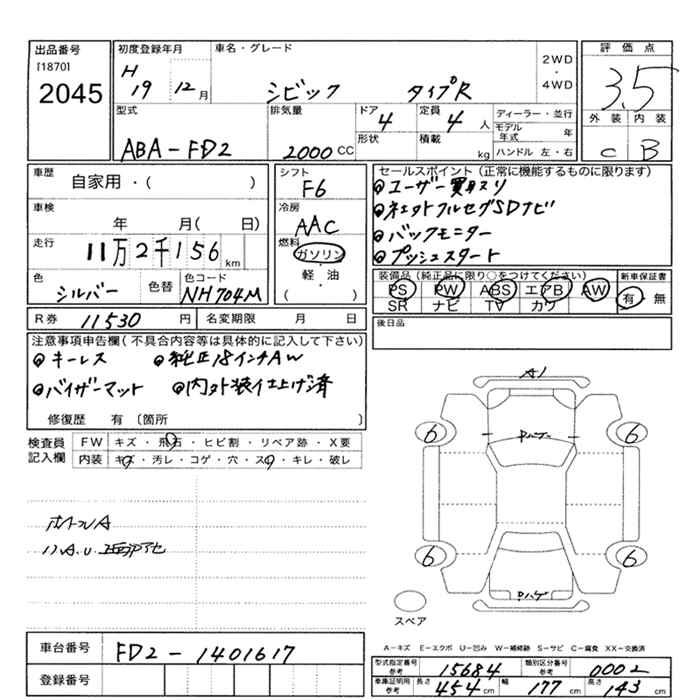 出品番号 初度登録年月 車名・グレード 2WD・4WD 評価点
[1870]
2045 H 19 12月 シビック タイプR 3.5
型式 排気量 ドア 定員 ディーラー・並行 外装 内装
ABA-FD2 2000cc 4 4人 モデル年式 年 C B
形状 積載 kg ハンドル 左・右
車歴 自家用・( ) シフト F6 セールスポイント(正常に機能するものに限ります)
車検 年 月( 日) 冷房 AAC
走行 11万2千156km 燃料 ガソリン・軽・油 ( )
色 シルバー 色替 色コード NH704M
●ユーザー買取スリ
●ネットフルセグSDナビ
●バックモニター
●プッシュスタート
装備品(純正品に限り○をつけてください) 新車保証書
PS PW ABS エアB AW 有・無
SR ナビ TV カワ
R券 11530円 名変期限 月 日 後日品
注意事項申告欄(不具合内容等は具体的に記入して下さい)
●キーレス ●純正18インチAW
●バイザーマット ●内外装仕上げ済
修復歴 有 〔箇所 〕
検査員記入欄 FW キズ・飛石・ヒビ割・リペア跡・X要
内装 キズ・汚レ・コゲ・穴・スレ・キレ・破レ
A1
6 Pハゲ 6
6 6
Pハゲ
スペア
A-キズ E-エクボ U-凹み W-補修跡 S-サビ C-腐食 XX-交換済
車台番号 FD2-1401617
登録番号
型式指定番号 参考 15684 類別区分番号 参考 0002
車庫証明用 参考 長さ 454cm 幅 177cm 高さ 143cm